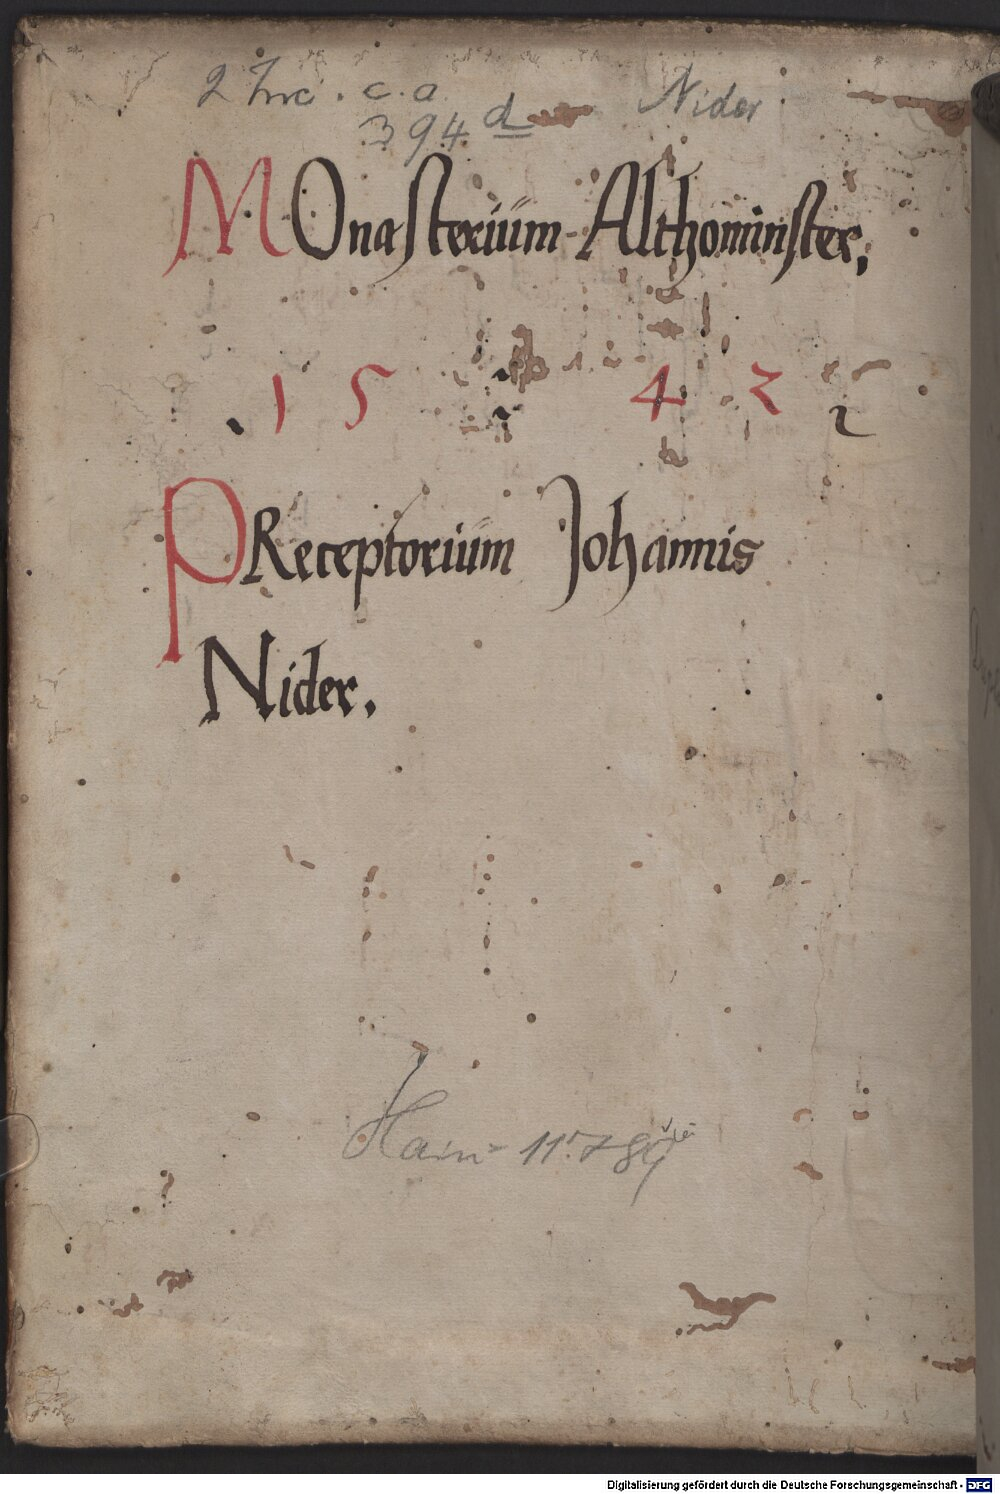 2 Inc. c. a.
394 d
Nider
MOnasterium Althominster,
1 5 4 2
PReceptorium Johannis
Nider.
Hain 11.789
Digitalisierung gefördert durch die Deutsche Forschungsgemeinschaft - DFG